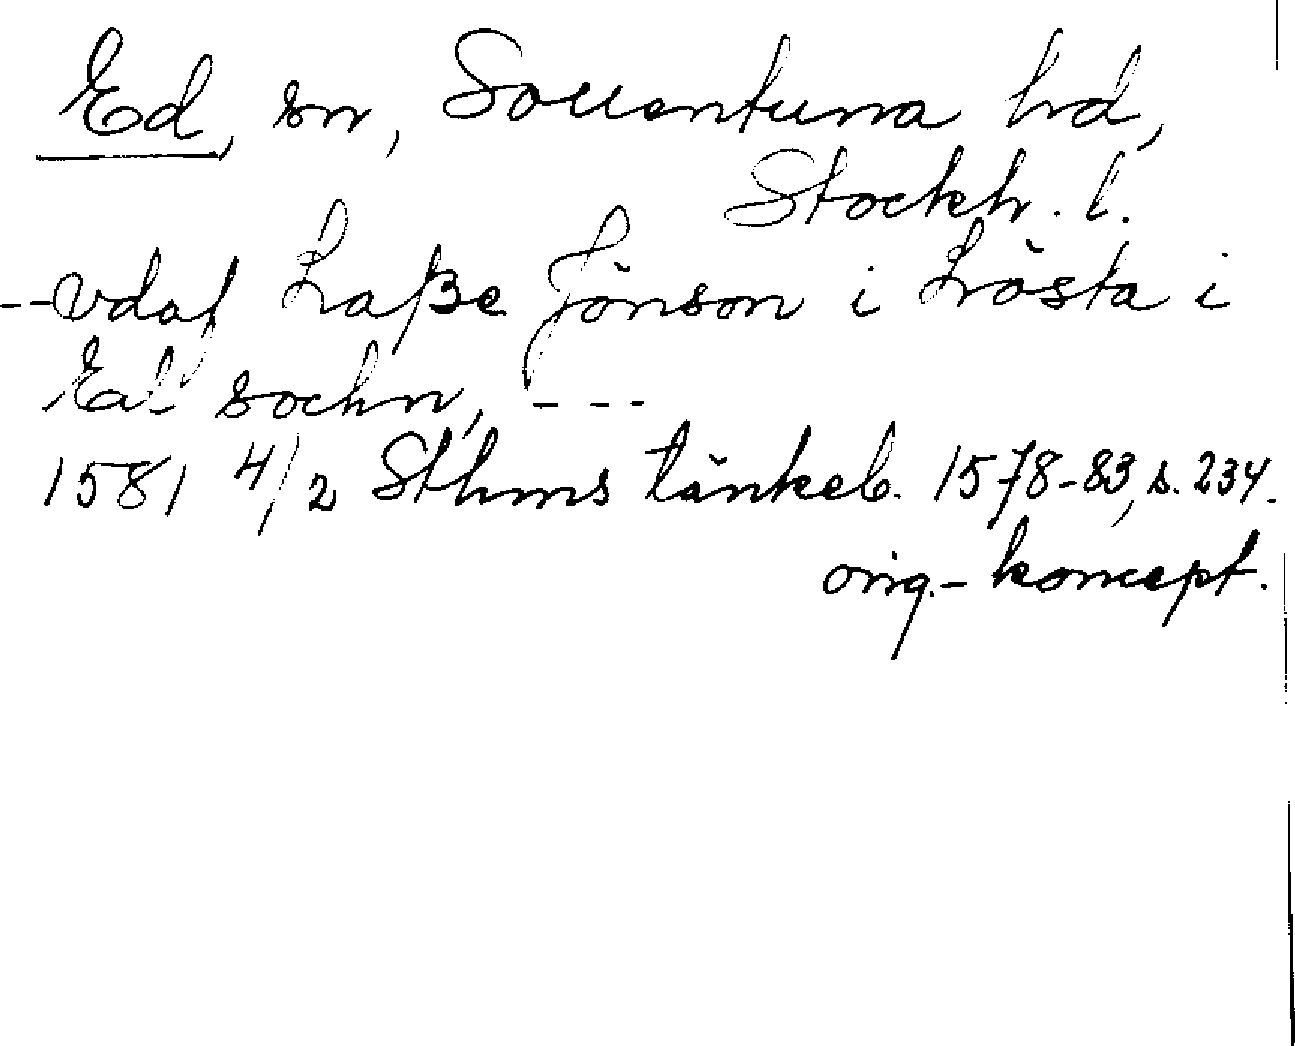 Ed, sn, Sollentuna hd,
Stockh. l.
--vdaf Laße Jönson i Lrösta i
Ed sochn, ---
1581 4/2 Sthms tänkeb. 1578-83, s. 234.
orig.-koncept.